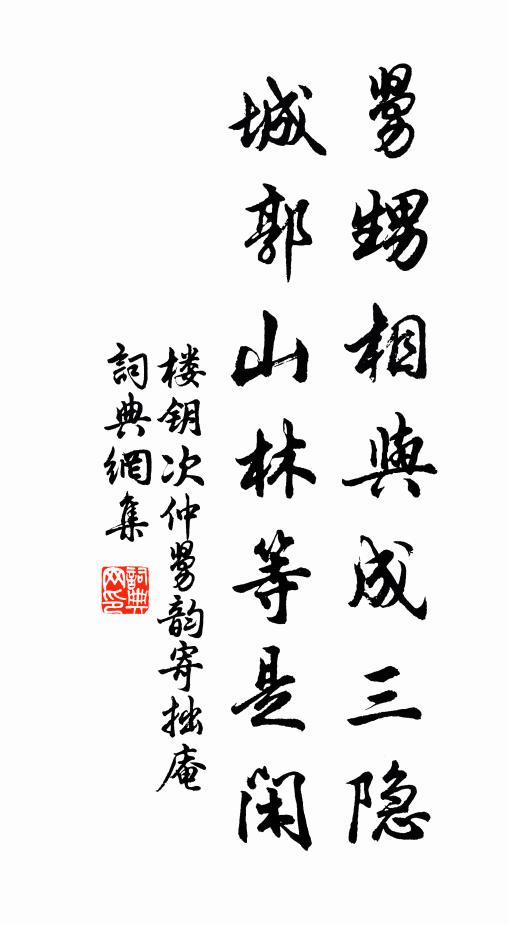 舅甥相與成三隐
城郭山林等是闲
楼钥次仲舅韵寄拙庵
詞典網集
詞典網印